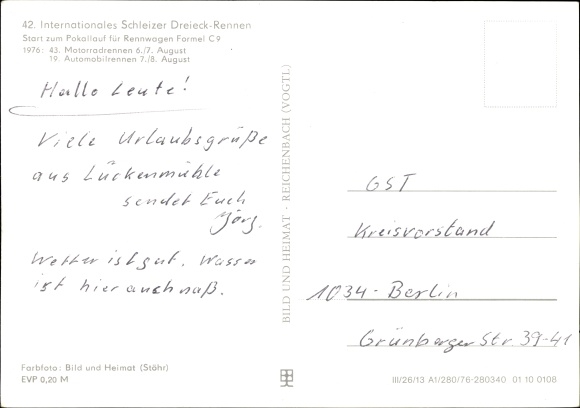 42. Internationales Schleizer Dreieck-Rennen
Start zum Pokallauf für Rennwagen Formel C9
1976: 43. Motorradrennen 6./7. August
19. Automobilrennen 7./8. August
Hallo Leute!
Viele Urlaubsgrüße
aus Lückenmühle
sendet Euch
Jörg.
Wetter ist gut. Wasser
ist hier auch naß.
Farbfoto: Bild und Heimat (Stöhr)
EVP 0,20 M
BILD UND HEIMAT · REICHENBACH (VOGTL)
GST
Kreisvorstand
1034 - Berlin
Grünberger Str. 39-41
III/26/13 A1/280/76-280340 01 10 0108